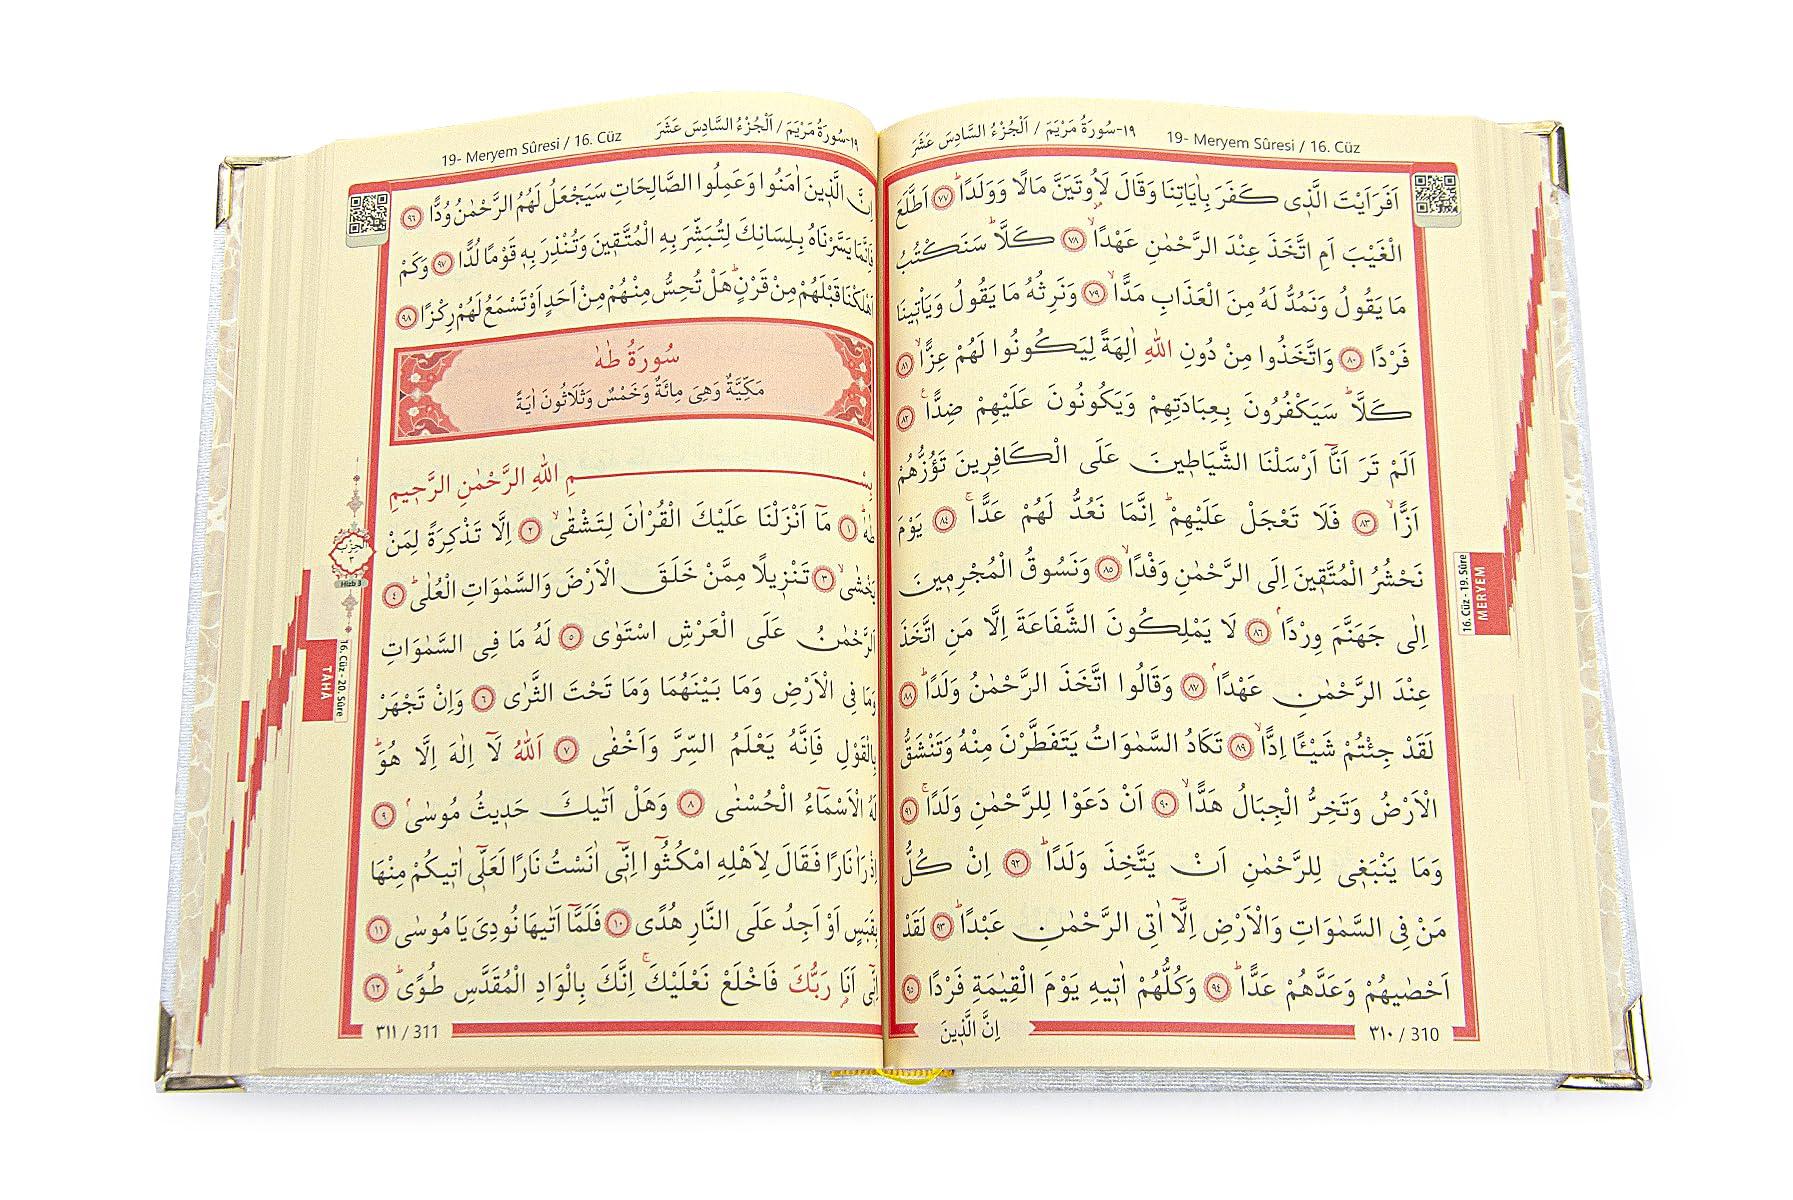 ١٩-سُورَةُ مَرْيَمَ / اَلْجُزْءُ السَّادِسَ عَشَرَ 19- Meryem Sûresi / 16. Cüz
اَفَرَاَيْتَ الَّذٖى كَفَرَ بِاٰيَاتِنَا وَقَالَ لَاُو۫تَيَنَّ مَالًا وَوَلَدًاؕ ﴿٧٧﴾ اَطَّلَعَ
الْغَيْبَ اَمِ اتَّخَذَ عِنْدَ الرَّحْمٰنِ عَهْدًاۙ ﴿٧٨﴾ كَلَّاؕ سَنَكْتُبُ
مَا يَقُولُ وَنَمُدُّ لَهُ مِنَ الْعَذَابِ مَدًّاۙ ﴿٧٩﴾ وَنَرِثُهُ مَا يَقُولُ وَيَاْتٖينَا
فَرْدًا ﴿٨٠﴾ وَاتَّخَذُوا مِنْ دُونِ اللّٰهِ اٰلِهَةً لِيَكُونُوا لَهُمْ عِزًّاۙ ﴿٨١﴾
كَلَّاؕ سَيَكْفُرُونَ بِعِبَادَتِهِمْ وَيَكُونُونَ عَلَيْهِمْ ضِدًّاࣖ ﴿٨٢﴾
اَلَمْ تَرَ اَنَّٓا اَرْسَلْنَا الشَّيَاطٖينَ عَلَى الْكَافِرٖينَ تَؤُزُّهُمْ
اَزًّاۙ ﴿٨٣﴾ فَلَا تَعْجَلْ عَلَيْهِمْؕ اِنَّمَا نَعُدُّ لَهُمْ عَدًّاۚ ﴿٨٤﴾ يَوْمَ
نَحْشُرُ الْمُتَّقٖينَ اِلَى الرَّحْمٰنِ وَفْدًاۙ ﴿٨٥﴾ وَنَسُوقُ الْمُجْرِمٖينَ
اِلٰى جَهَنَّمَ وِرْدًاۢ ﴿٨٦﴾ لَا يَمْلِكُونَ الشَّفَاعَةَ اِلَّا مَنِ اتَّخَذَ
عِنْدَ الرَّحْمٰنِ عَهْدًاۢ ﴿٨٧﴾ وَقَالُوا اتَّخَذَ الرَّحْمٰنُ وَلَدًاؕ ﴿٨٨﴾
لَقَدْ جِئْتُمْ شَيْـًٔا اِدًّاۙ ﴿٨٩﴾ تَكَادُ السَّمٰوَاتُ يَتَفَطَّرْنَ مِنْهُ وَتَنْشَقُّ
الْاَرْضُ وَتَخِرُّ الْجِبَالُ هَدًّاۙ ﴿٩٠﴾ اَنْ دَعَوْا لِلرَّحْمٰنِ وَلَدًاۚ ﴿٩١﴾
وَمَا يَنْبَغٖى لِلرَّحْمٰنِ اَنْ يَتَّخِذَ وَلَدًاؕ ﴿٩٢﴾ اِنْ كُلُّ
مَنْ فِى السَّمٰوَاتِ وَالْاَرْضِ اِلَّٓا اٰتِى الرَّحْمٰنِ عَبْدًاؕ ﴿٩٣﴾ لَقَدْ
اَحْصٰيهُمْ وَعَدَّهُمْ عَدًّاؕ ﴿٩٤﴾ وَكُلُّهُمْ اٰتٖيهِ يَوْمَ الْقِيٰمَةِ فَرْدًا ﴿٩٥﴾
اِنَّ الَّذٖينَ
٣١٠ / 310
16. Cüz - 19. Sûre
MERYEM
19- Meryem Sûresi / 16. Cüz ١٩-سُورَةُ مَرْيَمَ / اَلْجُزْءُ السَّادِسَ عَشَرَ
اِنَّ الَّذٖينَ اٰمَنُوا وَعَمِلُوا الصَّالِحَاتِ سَيَجْعَلُ لَهُمُ الرَّحْمٰنُ وُدًّا ﴿٩٦﴾
فَاِنَّمَا يَسَّرْنَاهُ بِلِسَانِكَ لِتُبَشِّرَ بِهِ الْمُتَّقٖينَ وَتُنْذِرَ بِهٖ قَوْمًا لُدًّا ﴿٩٧﴾ وَكَمْ
اَهْلَكْنَا قَبْلَهُمْ مِنْ قَرْنٍؕ هَلْ تُحِسُّ مِنْهُمْ مِنْ اَحَدٍ اَوْ تَسْمَعُ لَهُمْ رِكْزًا ﴿٩٨﴾
سُورَةُ طٰهٰ
مَكِّيَّةٌ وَهِىَ مِائَةٌ وَخَمْسٌ وَثَلَاثُونَ اٰيَةً
بِسْمِ اللّٰهِ الرَّحْمٰنِ الرَّحٖيمِ
طٰهٰ ﴿١﴾ مَٓا اَنْزَلْنَا عَلَيْكَ الْقُرْاٰنَ لِتَشْقٰىۙ ﴿٢﴾ اِلَّا تَذْكِرَةً لِمَنْ
يَخْشٰىۙ ﴿٣﴾ تَنْزٖيلًا مِمَّنْ خَلَقَ الْاَرْضَ وَالسَّمٰوَاتِ الْعُلٰىؕ ﴿٤﴾
اَلرَّحْمٰنُ عَلَى الْعَرْشِ اسْتَوٰى ﴿٥﴾ لَهُ مَا فِى السَّمٰوَاتِ
وَمَا فِى الْاَرْضِ وَمَا بَيْنَهُمَا وَمَا تَحْتَ الثَّرٰى ﴿٦﴾ وَاِنْ تَجْهَرْ
بِالْقَوْلِ فَاِنَّهُ يَعْلَمُ السِّرَّ وَاَخْفٰى ﴿٧﴾ اَللّٰهُ لَٓا اِلٰهَ اِلَّا هُوَؕ
لَهُ الْاَسْمَٓاءُ الْحُسْنٰى ﴿٨﴾ وَهَلْ اَتٰيكَ حَدٖيثُ مُوسٰىۢ ﴿٩﴾
اِذْ رَاٰ نَارًا فَقَالَ لِاَهْلِهِ امْكُثُٓوا اِنّٖٓى اٰنَسْتُ نَارًا لَعَلّٖٓى اٰتٖيكُمْ مِنْهَا
بِقَبَسٍ اَوْ اَجِدُ عَلَى النَّارِ هُدًى ﴿١٠﴾ فَلَمَّٓا اَتٰيهَا نُودِىَ يَا مُوسٰى ﴿١١﴾
اِنّٖٓى اَنَا۬ رَبُّكَ فَاخْلَعْ نَعْلَيْكَۚ اِنَّكَ بِالْوَادِ الْمُقَدَّسِ طُوًىؕ ﴿١٢﴾
٣١١ / 311
اَلْحِزْبُ
٣
Hizb 3
16. Cüz - 20. Sûre
TAHA